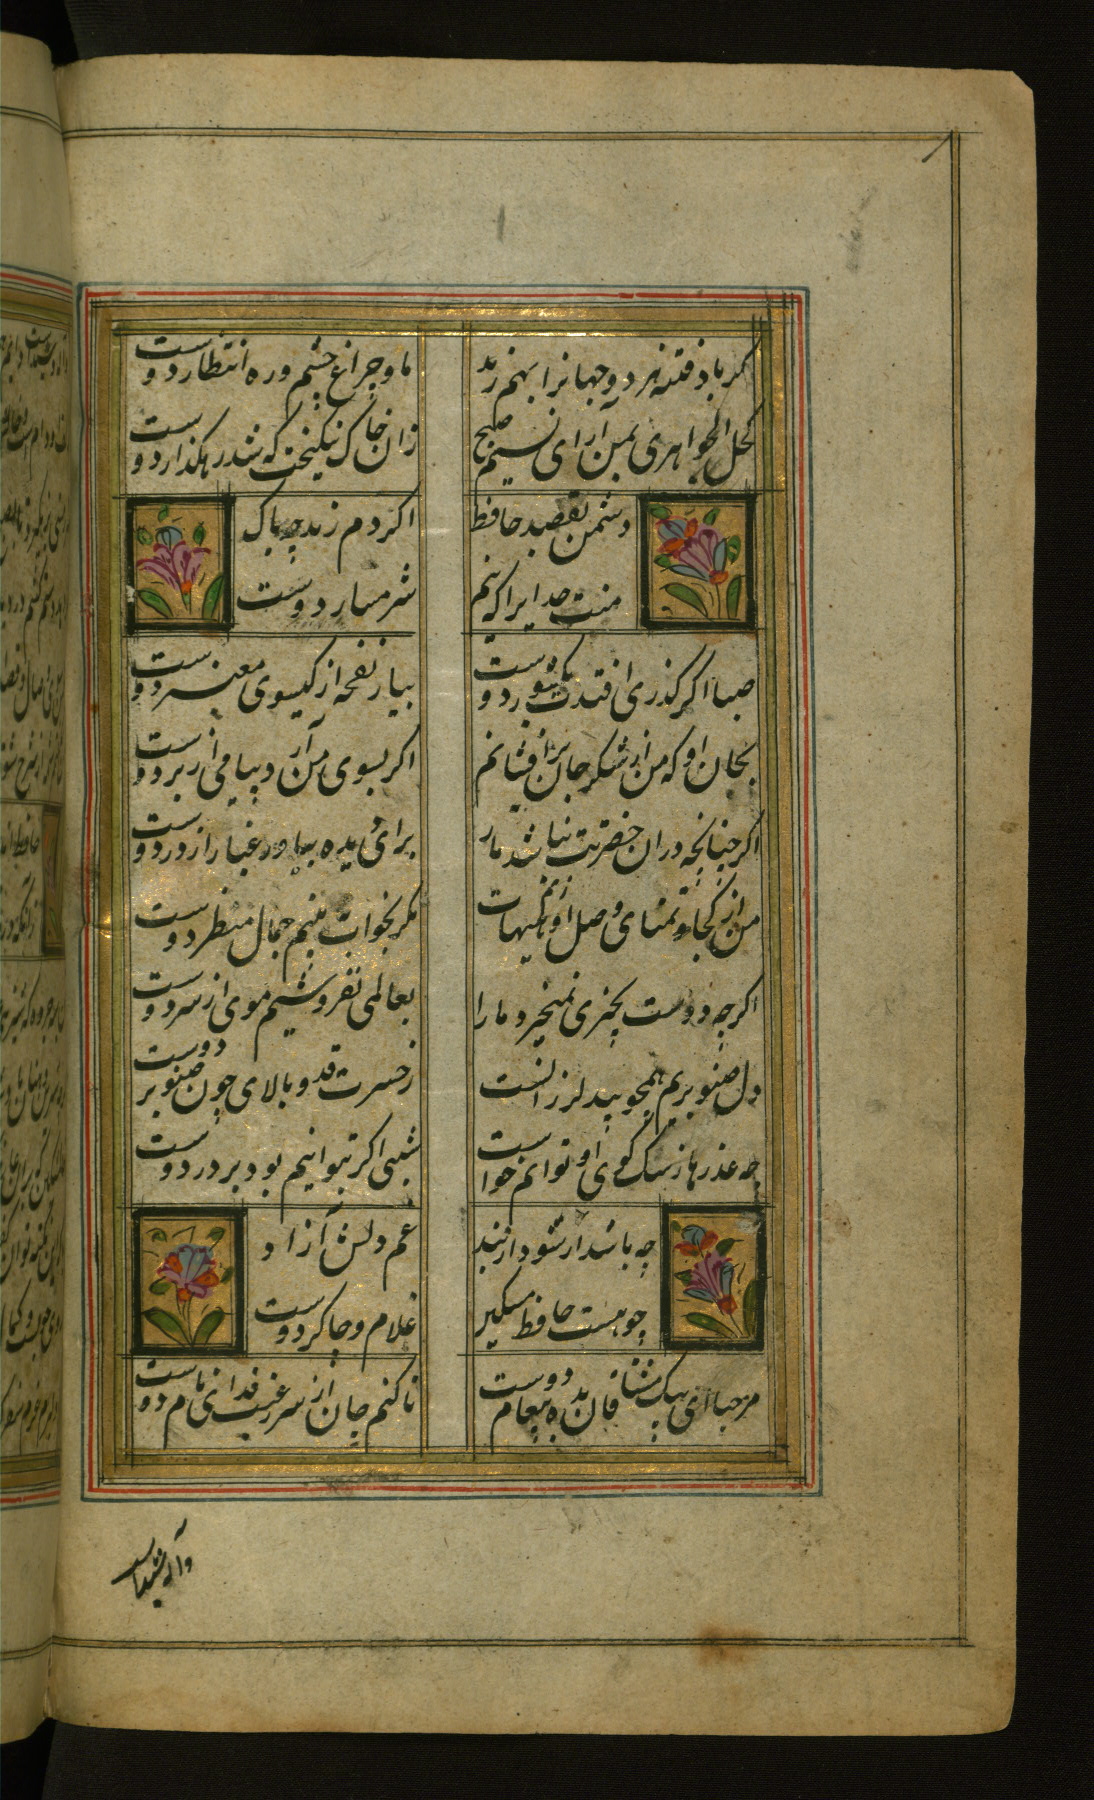 گر باد فتنه هر دو جهانرا بهم زند
ما و چراغ چشم و ره انتظار دوست
کحل الجواهری بمن آر ای نسیم صبح
زان خاک نیکبخت که شد رهکذار دوست
دشمن بقصد حافظ
اکر دم زند چه باک
منت خدایرا که نیم
شرمسار دوست
صبا اکر کذری افتدت بکشور دوست
بیار نفحه از کیسوی معنبر دوست
بجان او که من از شکر جان برافشانم
اکر بسوی من آری پیامی از بر دوست
اکر چنانچه دران حضرتت نباشد بار
برای دیده بیاور غبار از در دوست
من از کجا و تمنای وصل او هیهات
مکر بخواب ببینم جمال منظر دوست
اکرچه دوست بچیزی نمیخرد ما را
بعالمی نفروشیم موی از سر دوست
دل صنوبریم همچو بید لرزانست
ز حسرت قد و بالای چون صنوبر دوست
چه عذرها ز سک کوی او توانم خواست
شبی اکر بتوانیم بود بر در دوست
چه باشد ار شود از بند
غم دلش آزاد
چو هست حافظ مسکین
غلام و چاکر دوست
مرحبا ای پیک مشتاقان بده پیغام دوست
تا کنم جان از سر رغبت فدای نام دوست
واله شیداست